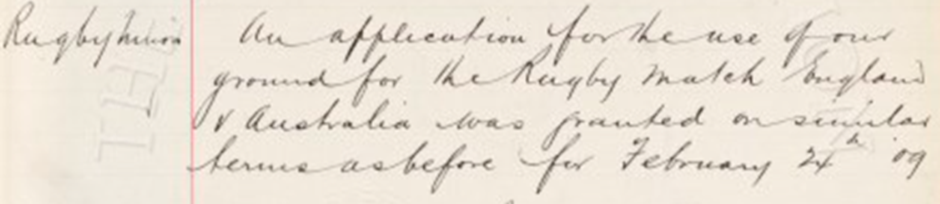 Rugby Union
An application for the use of our
ground for the Rugby Match England
v Australia was granted on similar
terms as before for February 24th 09